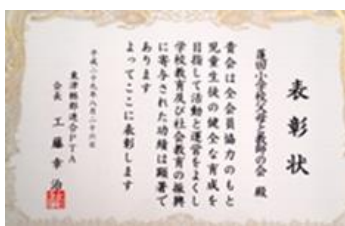 表彰状
蓮田小学校父母と教師の会 殿
貴会は全会員協力のもと
児童生徒の健全な育成を
目指して活動と運営をよくし
学校教育及び社会教育の振興
に寄与された功績は顕著で
あります
よってここに表彰します
平成二十九年八月二十六日
東津軽郡連合PTA
会長 工藤幸治